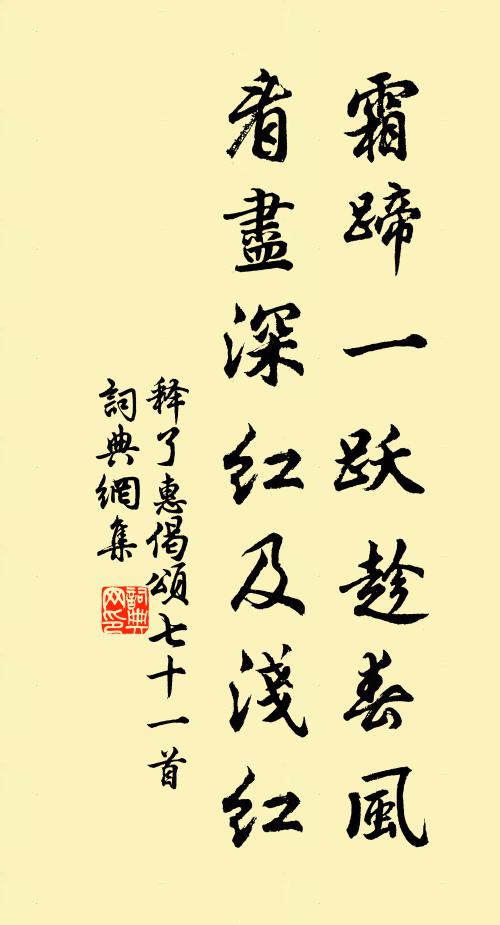 霜蹄一跃趁春風
看盡深红及淺红
释了惠偈頌七十一首
詞典網集
詞典网印